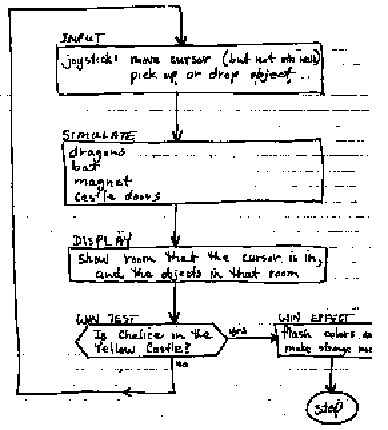 INPUT
joystick: move cursor (but not into walls)
pick up or drop object
SIMULATE
dragons
bat
magnet
castle doors
DISPLAY
Show room that the cursor is in,
and the objects in that room
WIN TEST
Is Chalice in the
Yellow Castle?
yes
no
WIN EFFECT
flash colors
make strange
stop